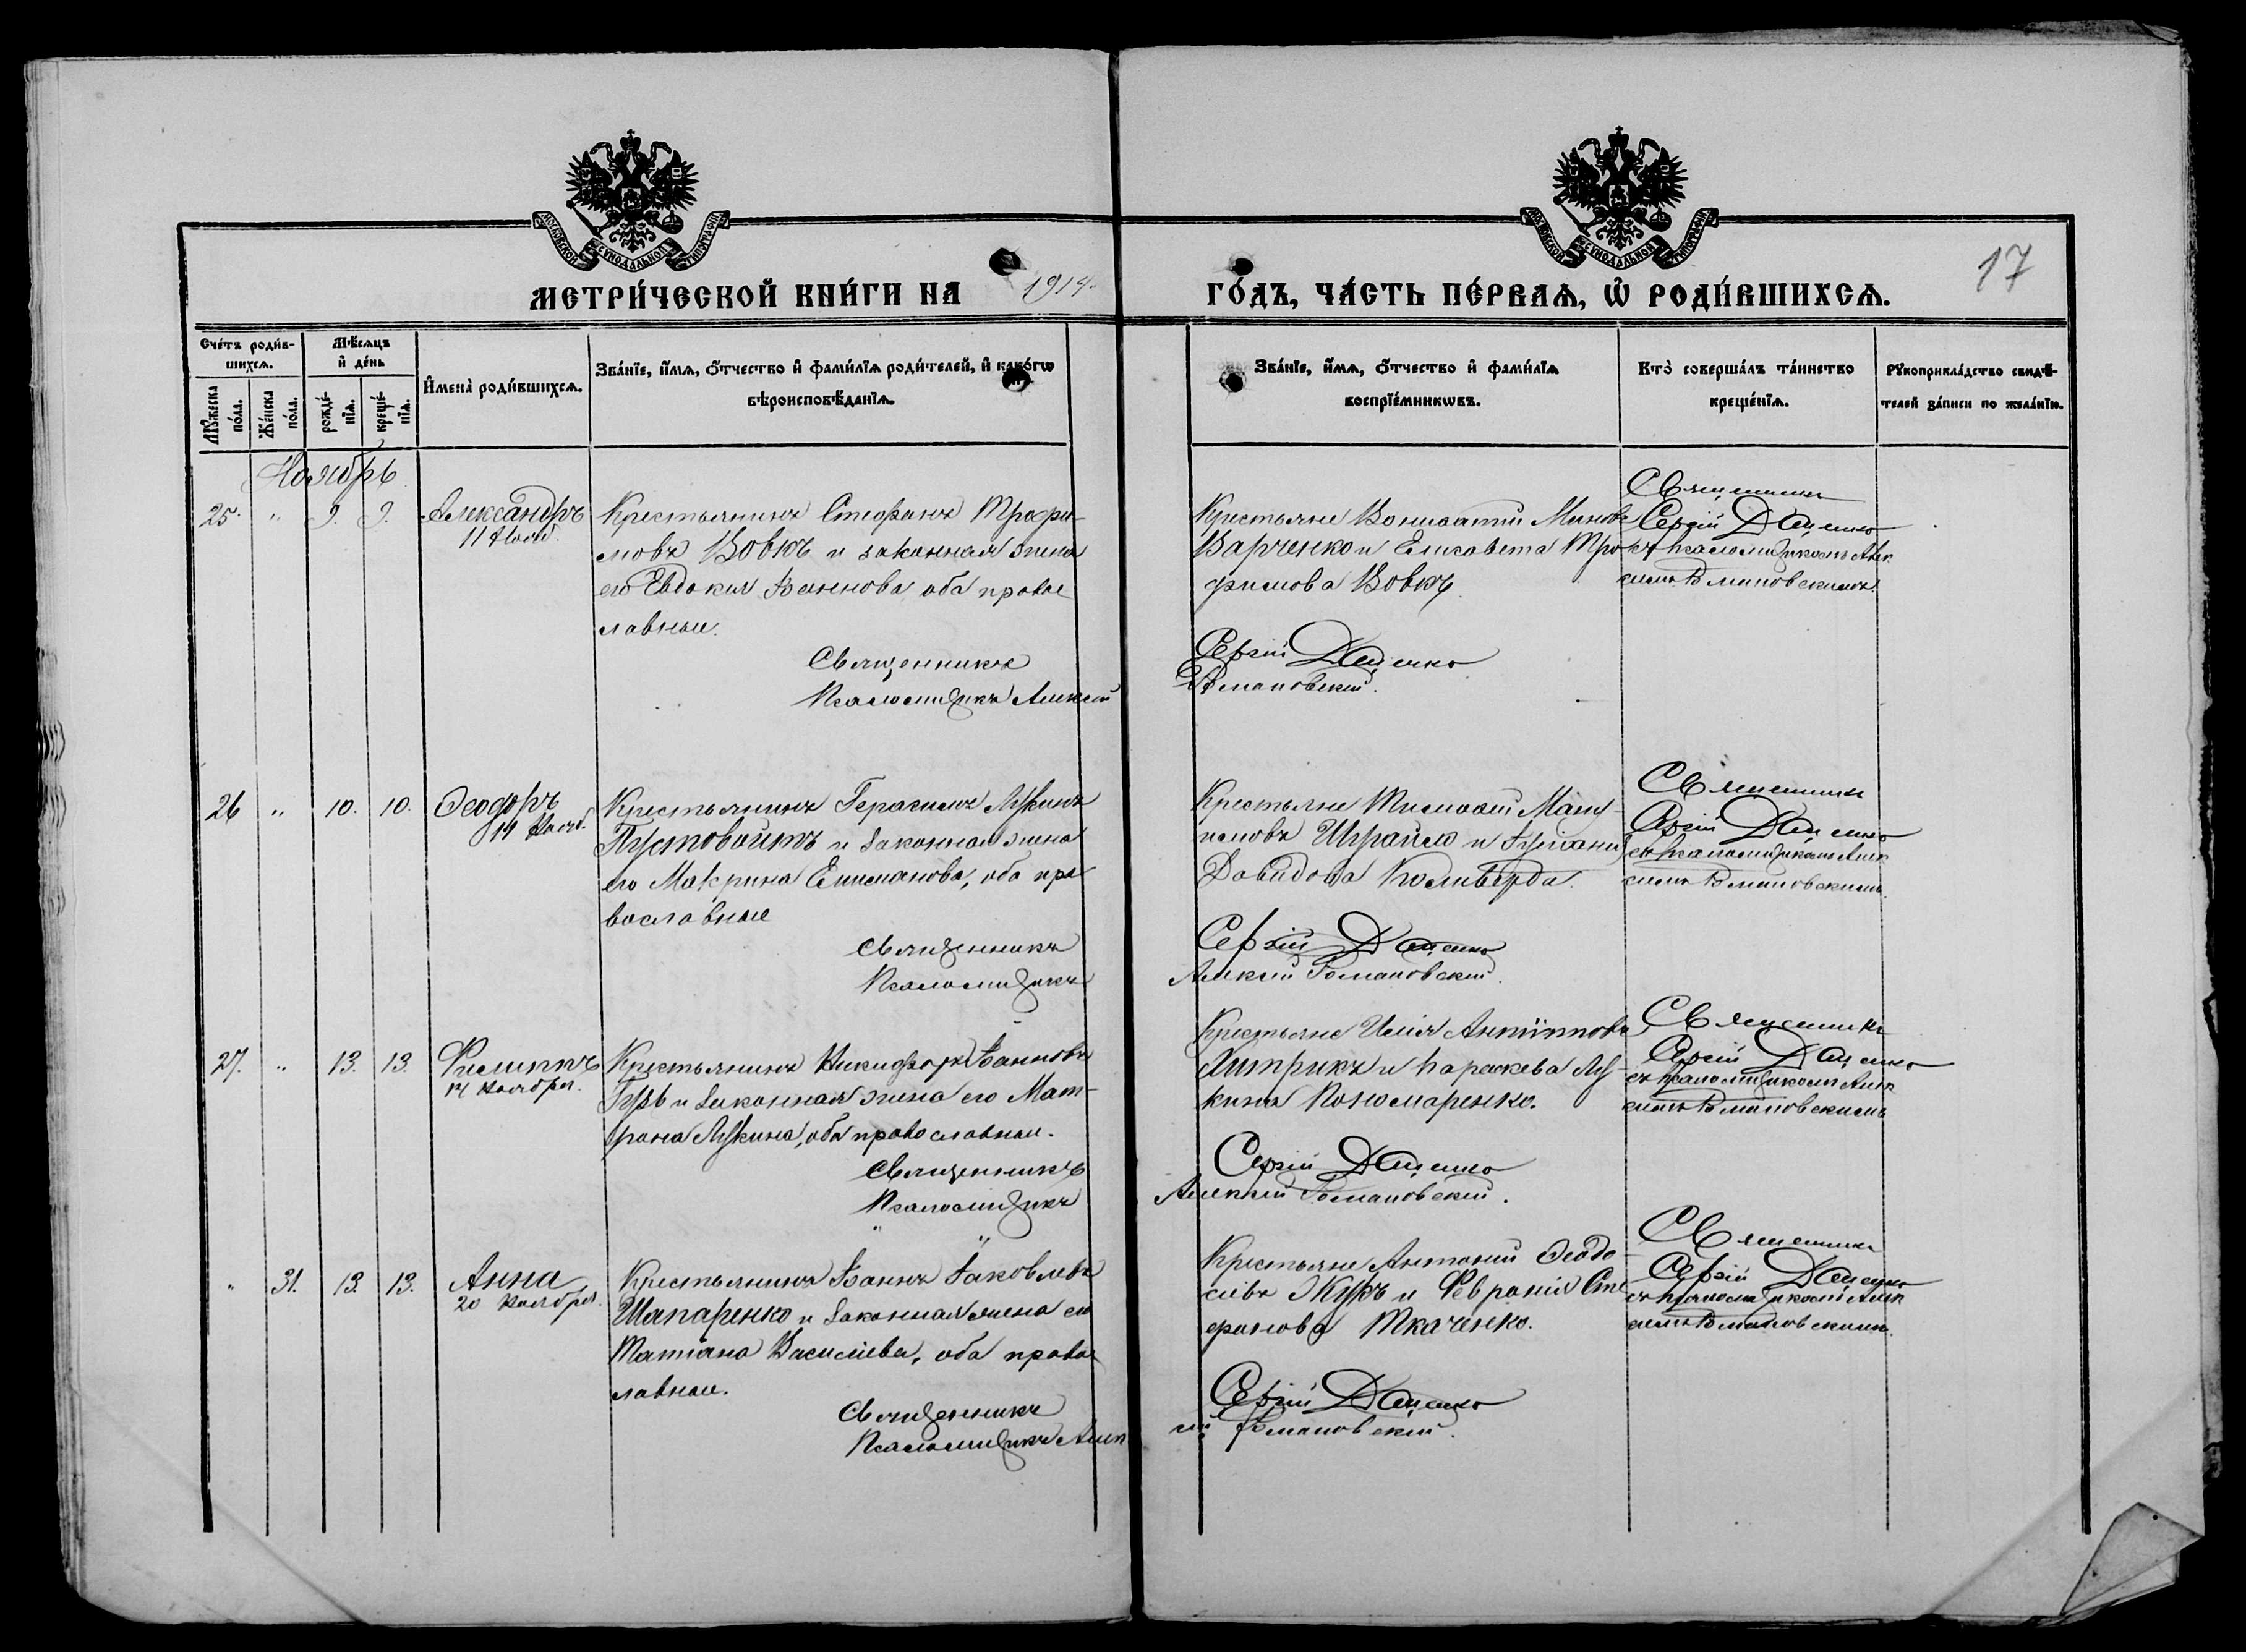 МОСКОВСКОЙ СѴНОДАЛЬНОЙ ТИПОГРАФІИ
МОСКОВСКОЙ СѴНОДАЛЬНОЙ ТИПОГРАФІИ
17
МЕТРИ́ЧЕСКОЙ КНИ́ГИ НА 1914. ГО́ДЪ, ЧА́СТЬ ПЕ́РВАѦ, Ѡ҆ РОДИ́ВШИХСѦ.
Сче́тъ роди́в-
шихсѧ.
Мꙋ́жеска по́ла.
Же́нска по́ла.
Мѣ́сѧцъ и҆ де́нь
рожде́-нїѧ.
креще́-нїѧ.
И҆мена̀ роди́вшихсѧ.
Зва́нїе, и҆́мѧ, о҆́тчество и҆ фами́лїѧ роди́телей, и҆ како́гѡ
вѣроисповѣ́данїѧ.
Зва́нїе, и҆́мѧ, о҆́тчество и҆ фами́лїѧ
воспрїе́мникѡвъ.
Кто̀ соверша́лъ та́инство
креще́нїѧ.
Рꙋкоприкла́дство свидѣ́-
телей за́писи по жела́нїю.
Ноябрь
25. " 9. 9. Александръ
11 Нояб.
Крестьянинъ Стефанъ Трофи-
мовъ Вовкъ и законная жена
его Евдокия Іоаннова оба право
славные.
Священникъ
Псаломщикъ Алексій
Крестьяне Миновъ
Варченко и Елисавета Тро
фимова Вовкъ.
Сергій Даценко
Романовскій.
Священникъ
Сергій Даценко
съ псаломщикомъ Алек
сіемъ Романовскимъ.
26 " 10. 10. Ѳеодоръ
19 Нояб.
Крестьянинъ Герасимъ Лукинъ
Пустовойтъ и законная жена
его Макрина, оба пра
вославные
Священникъ
Псаломщикъ
Крестьяне Тимоѳей
и
Давидова Колиберда.
Сергій Даценко
Алексій Романовскій.
Священникъ
Сергій Даценко
съ псаломщикомъ Алек
сіемъ Романовскимъ.
27. " 13. 13. Филиппъ
14 Ноября.
Крестьянинъ Никифоръ Іоанновъ
Гузь и законная жена его Мат-
рона Лукина, оба православные.
Священникъ
Псаломщикъ
Крестьяне Илія Антиповъ
Литрикъ и Параскева Лу-
кина Пономаренко.
Сергій Даценко
Алексій Романовскій.
Священникъ
Сергій Даценко
съ псаломщикомъ Алек
сіемъ Романовскимъ
" 31. 13. 13. Анна
20 Ноября.
Крестьянинъ Іоаннъ Іаковлевъ
Шапаренко и законная жена его
Татіана Василіева, оба право
славные.
Священникъ
Псаломщикъ Алек
Крестьяне Антоній Ѳеодо-
сіевъ Жукъ и Февронія Сте
фанова Ткаченко.
Сергій Даценко
сій Романовскій.
Священникъ
Сергій Даценко
съ псаломщикомъ Алек
сіемъ Романовскимъ.